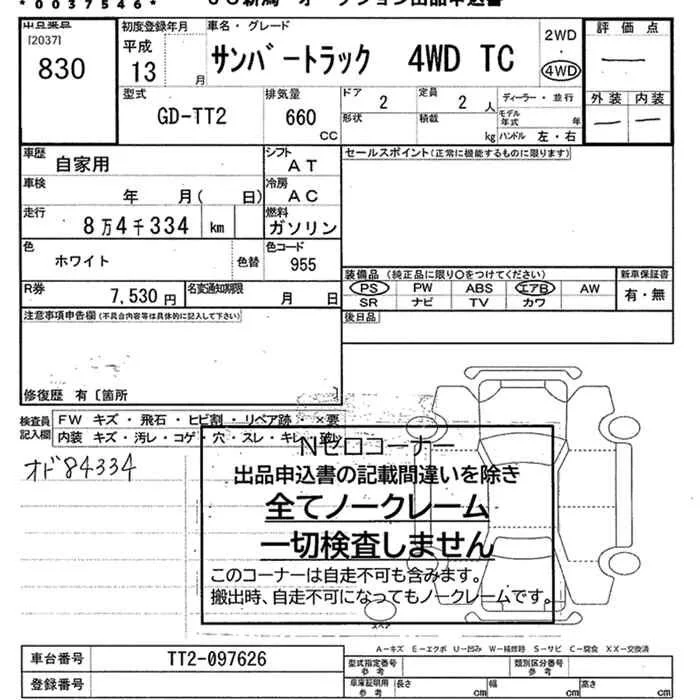 * 0037546 *
出品番号
[2037]
830
初度登録年月
平成
13 月
車名・グレード
サンバートラック 4WD TC
2WD
・
4WD
評価点
—
外装 内装
— —
型式
GD-TT2
排気量
660
CC
ドア 2
定員 2 人
形状
積載 kg
ディーラー・並行
モデル年式 年
ハンドル 左・右
車歴 自家用
シフト AT
セールスポイント(正常に機能するものに限ります)
車検 年 月( 日)
冷房 AC
走行 8万4千334 km
燃料 ガソリン
色 ホワイト
色替
色コード 955
R券 7,530円
名変通知期限 月 日
装備品(純正品に限り○をつけてください)
PS PW ABS エアB AW
SR ナビ TV カワ
新車保証書
有・無
注意事項申告欄(不具合内容等は具体的に記入して下さい)
後日品
修復歴 有〔箇所 〕
検査員記入欄
FW キズ・飛石・ヒビ割・リペア跡・×要
内装 キズ・汚レ・コゲ・穴・スレ・キレ
オド84334
Nゼロコーナー
出品申込書の記載間違いを除き
全てノークレーム
一切検査しません
このコーナーは自走不可も含みます。
搬出時、自走不可になってもノークレームです。
スペア
A-キズ E-エクボ U-凹み W-補修跡 S-サビ C-腐食 XX-交換済
車台番号 TT2-097626
登録番号
型式指定番号 参考
類別区分番号 参考
車庫証明用 参考
長さ cm 幅 cm 高さ cm